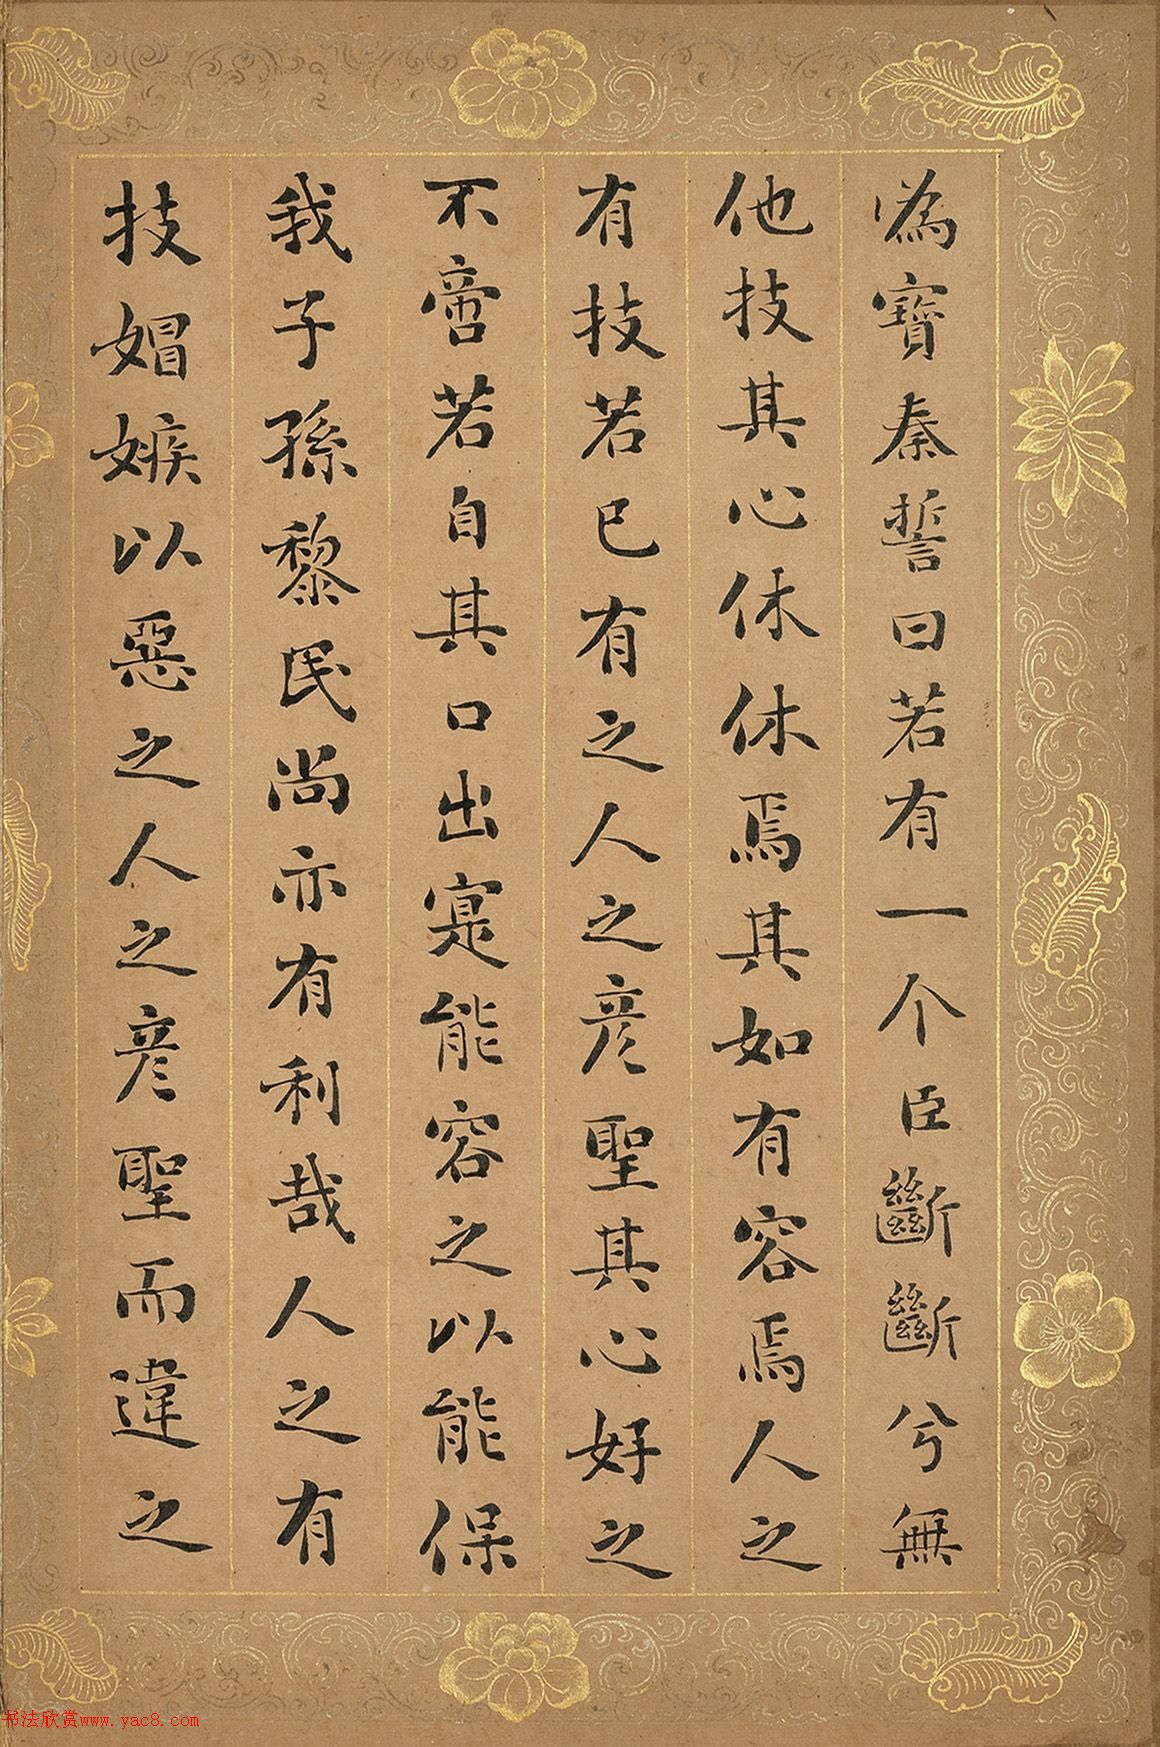 為寶秦誓曰若有一个臣斷斷兮無
他技其心休休焉其如有容焉人之
有技若已有之人之彦聖其心好之
不啻若自其口出寔能容之以能保
我子孫黎民尚亦有利哉人之有
技媢嫉以惡之人之彦聖而違之
书法欣赏www.yac8.com